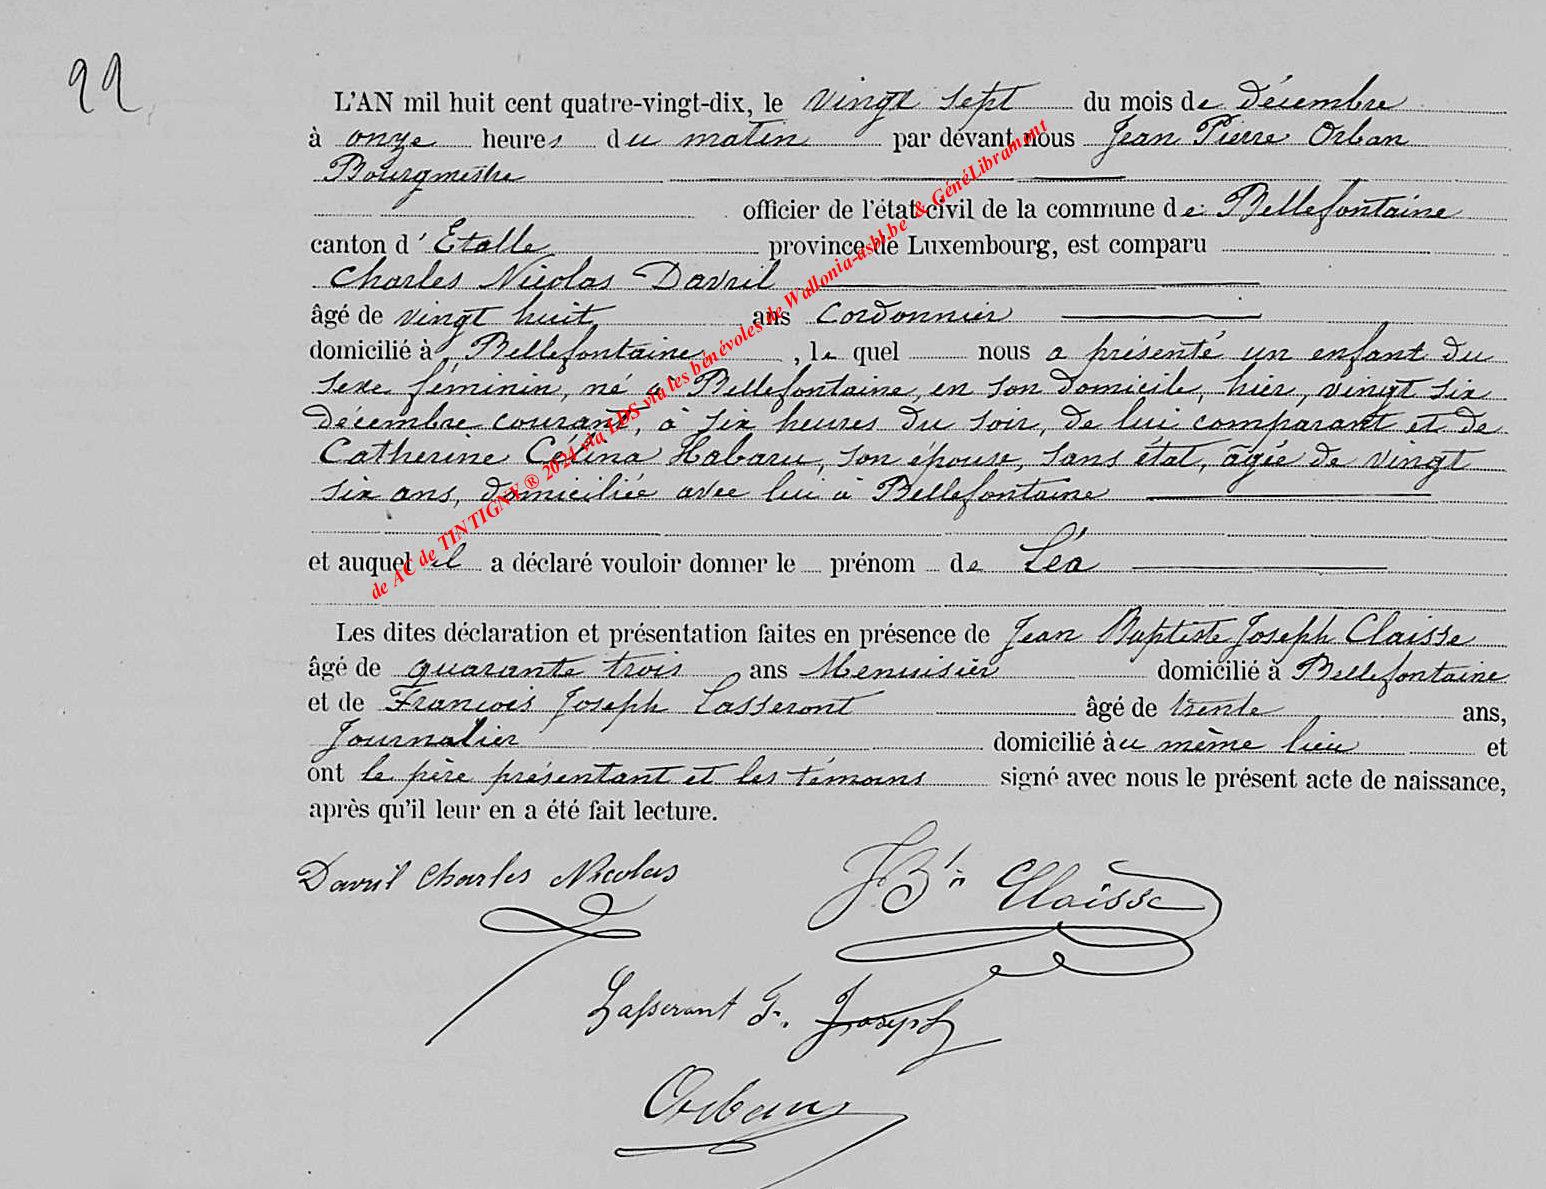 22
L'AN mil huit cent quatre-vingt-dix, le vingt sept du mois de décembre
à onze heures du matin par devant nous Jean Pierre Orban
Bourgmestre
officier de l'état civil de la commune de Bellefontaine
canton d'Etalle province de Luxembourg, est comparu
Charles Nicolas Davril
âgé de vingt huit ans cordonnier
domicilié à Bellefontaine, lequel nous a présenté un enfant du
sexe féminin, né à Bellefontaine, en son domicile, hier, vingt six
décembre courant, à six heures du soir, de lui comparant et de
Catherine Célina Habaru, son épouse, sans état, âgée de vingt
six ans, domiciliée avec lui à Bellefontaine
et auquel il a déclaré vouloir donner le prénom de Léa
Les dites déclaration et présentation faites en présence de Jean Baptiste Joseph Claisse
âgé de quarante trois ans Menuisier domicilié à Bellefontaine
et de François Joseph Lasseront âgé de trente ans,
Journalier domicilié au même lieu et
ont le père présentant et les témoins signé avec nous le présent acte de naissance,
après qu'il leur en a été fait lecture.
Davril Charles Nicolas
J Bte Claisse
Lasseront F. Joseph
Orban
de AC de TINTIGNY ® 2024 via LDS via les bénévoles de Wallonia-asbl.be & GénéLibramont